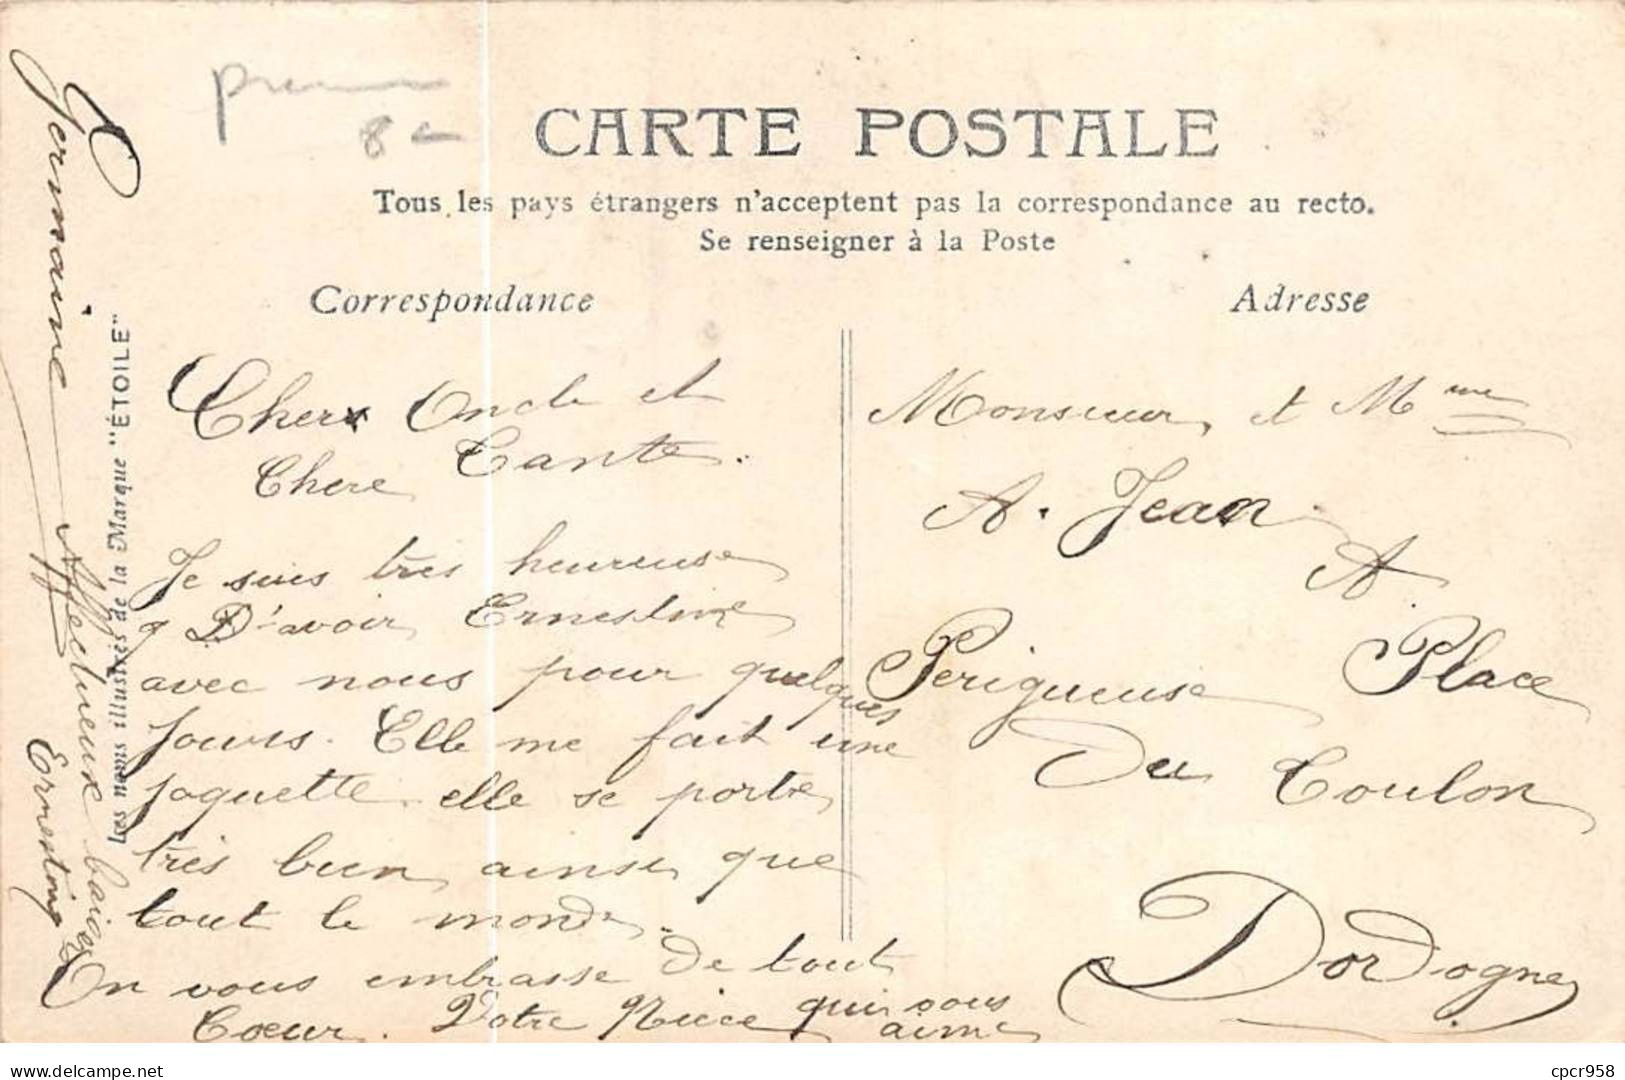 8
CARTE POSTALE
Tous les pays étrangers n'acceptent pas la correspondance au recto.
Se renseigner à la Poste
Correspondance
Adresse
Les noms illustrés de la Marque "ÉTOILE"
Cher Oncle et
Chere Tante.
Je suis très heureuse
D'avoir Ernestine
avec nous pour quelques
jours. Elle me fait une
jaquette elle se porte
très bien ainsi que
tout le monde.
On vous embrasse De tout
Cœur. Votre Niece qui vous
aime
Germaine
Affectueux baisers
Ernestine
Monsieur et Mme
A. Jean
A
Perigueuse Place
Du Coulon
Dordogne
www.delcampe.net
cpcr958